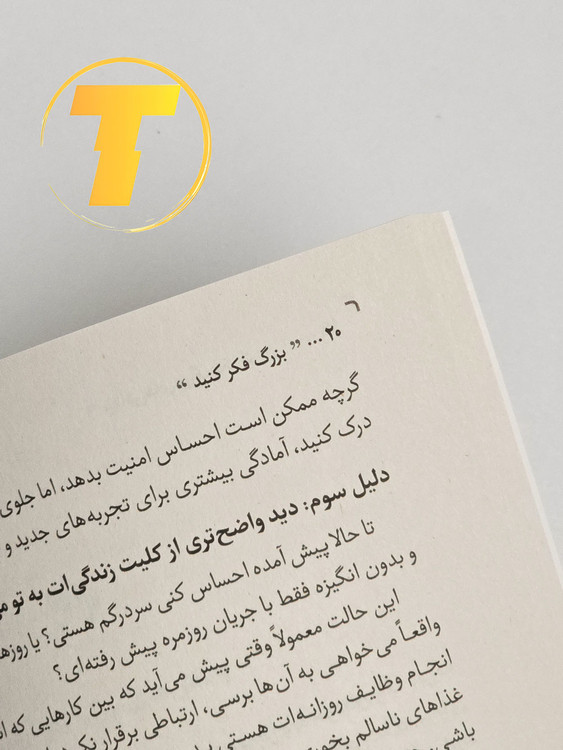 T
۲۰ ... ” بزرگ فکر کنید “
گرچه ممکن است احساس امنیت بدهد، اما جلوی
درک کنید، آمادگی بیشتری برای تجربه‌های جدید و
دلیل سوم: دید واضح‌تری از کلیت زندگی‌ات به تو
تا حالا پیش آمده احساس کنی سردرگم هستی؟ یا
و بدون انگیزه فقط با جریان روزمره پیش رفته‌ای؟
این حالت معمولاً وقتی پیش می‌آید که بین کارهایی که
واقعاً می‌خواهی به آن‌ها برسی، ارتباطی برقرار
انجام وظایف روزانه‌ات هستی
غذاهای ناسالم